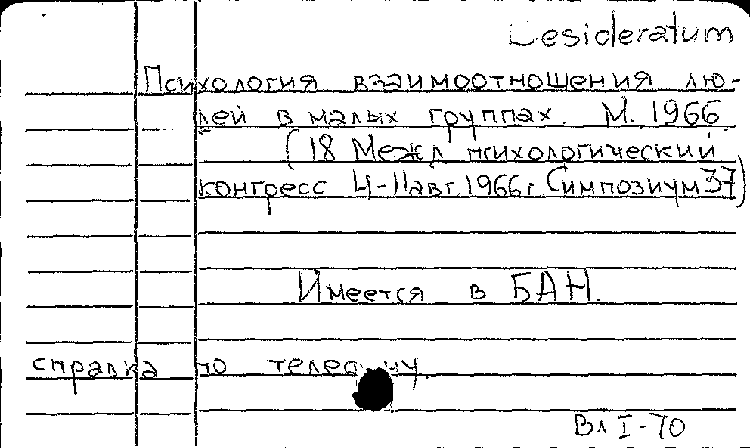 Desideratum
Психология взаимоотношения лю-
дей в малых группах. М. 1966
(18 Межд психологический
конгресс 4-11 авг. 1966 г. Симпозиум 37)
Имеется в БАН.
справка по телефону.
Вл I-70